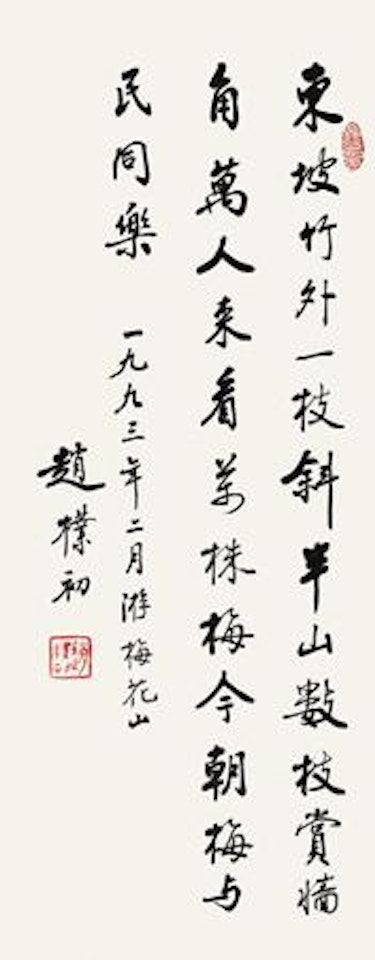 東坡竹外一枝斜半山數枝賞牆
角萬人来看萬株梅今朝梅与
民同樂
一九九三年二月游梅花山
趙樸初